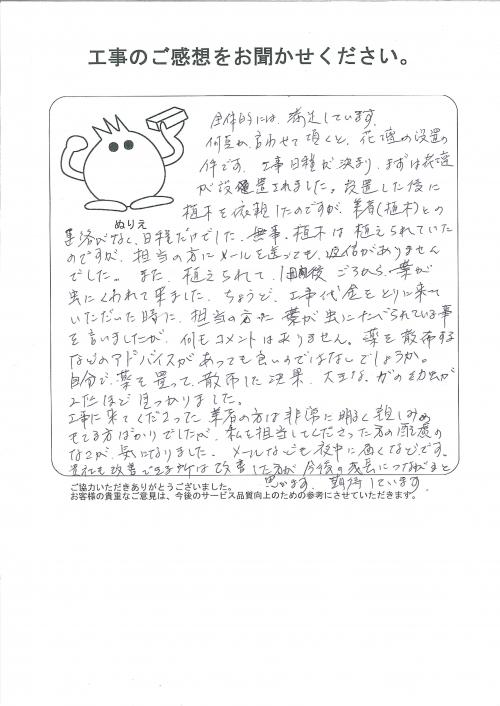 工事のご感想をお聞かせください。
全体的には、満足しています。
何点か言わせて頂くと、花壇の設置の
件です。工事日程が決まり、まずは花壇
が設置されました。設置した後に
植木を依頼したのですが、業者(植木)との
ぬりえ
連絡がなく、日程だけでした。無事、植木は植えられていた
のですが、担当の方にメールを送っても、返信がありません
でした。また、植えられて、1週間後ごろから、葉が
虫にくわれて来ました。ちょうど、工事代金をとりに来て
いただいた時に、担当の方に葉が虫にたべられている事
を言いましたが、何もコメントはありません。薬を散布する
などのアドバイスがあっても良いのではないでしょうか。
自分で、薬を買って、散布した結果、大きな、ガの幼虫が
2匹ほど見つかりました。
工事に来てくださった業者の方は非常に明るく親しみの
もてる方ばかりでしたが、私を担当してくださった方の配慮の
なさが、気になりました。メールなども夜中に届くなどです。
会社も改善できる所は改善した方が今後の成長につながると
思います。期待しています。
ご協力いただきありがとうございました。
お客様の貴重なご意見は、今後のサービス品質向上のための参考にさせていただきます。